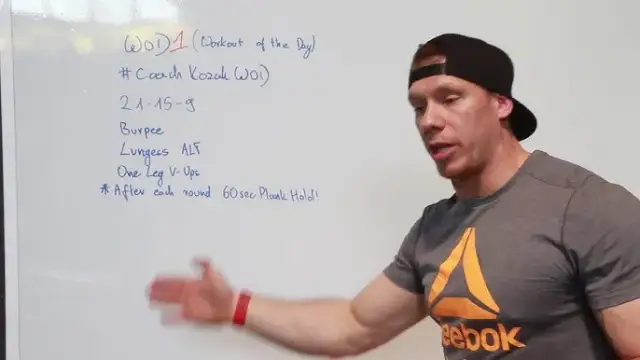 WOD 1 (Workout of the Day)
#Coach Kozak WOD
21-15-9
Burpee
Lungess ALT
One Leg V-Ups
* After each round 60sec Plank Hold!
eebok